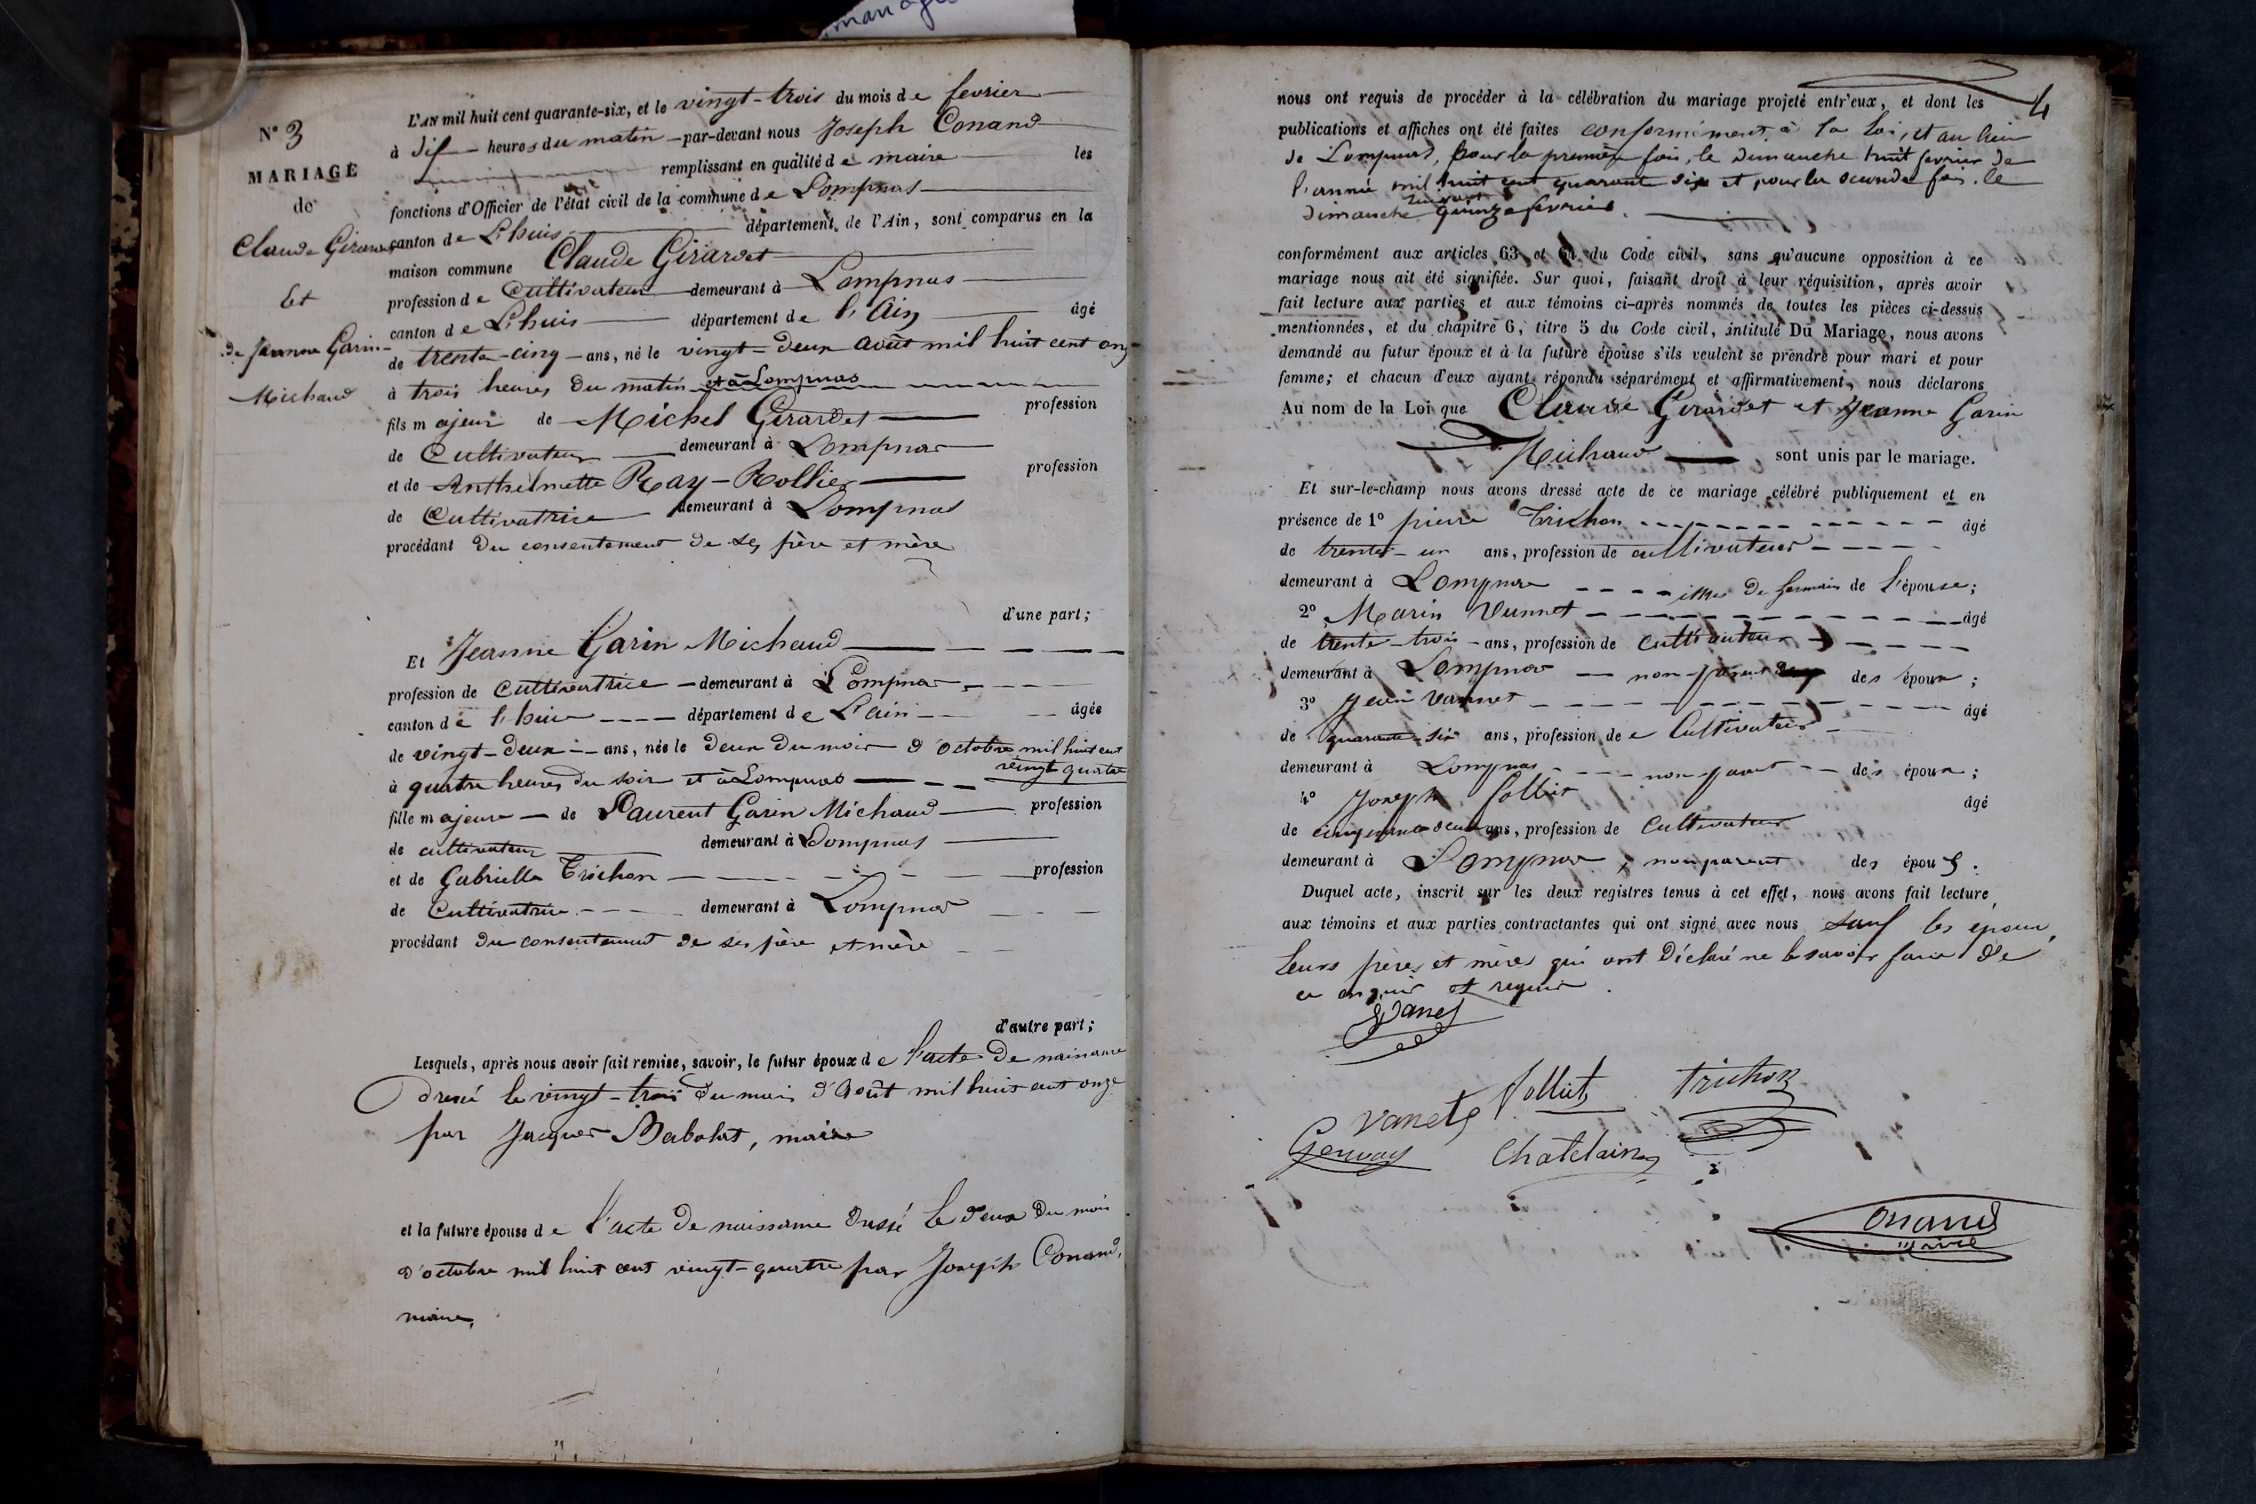 manage
N° 3
MARIAGE
de
Claude Girardet
Et
de Jeanne Garin-
Michaud
L'AN mil huit cent quarante-six, et le vingt-trois du mois de fevrier
à dix heures du matin par-devant nous Joseph Conand
remplissant en qualité de maire les
fonctions d'Officier de l'état civil de la commune de Lompnas
canton de L'huis département de l'Ain, sont comparus en la
maison commune Claude Girardet
profession de Cultivateur demeurant à Lompnas
canton de L'huis département de l'Ain âgé
de trente-cinq ans, né le vingt-deux août mil huit cent onze
à trois heures du matin et à Lompnas
fils majeur de Michel Girardet profession
de Cultivateur demeurant à Lompnas
et de Anthelmette Ray-Rollier profession
de Cultivatrice demeurant à Lompnas
procédant du consentement de ses père et mère
d'une part;
Et Jeanne Garin Michaud
profession de Cultivatrice demeurant à Lompnas
canton de l'huis département de L'ain âgée
de vingt-deux ans, née le deux du mois d'octobre mil huit cent
vingt quatre
à quatre heures du soir et à Lompnas
fille majeure de Laurent Garin Michaud profession
de cultivateur demeurant à Lompnas
et de Gabrielle Trichon profession
de Cultivatrice demeurant à Lompnas
procédant du consentement de ses père et mère
d'autre part;
Lesquels, après nous avoir fait remise, savoir, le futur époux de l'acte de naissance
dressé le vingt-trois du mois d'Août mil huit cent onze
par Jacques Babolat, maire
et la future épouse de l'acte de naissance dressé le deux du mois
d'octobre mil huit cent vingt-quatre par Joseph Conand,
maire,
4
nous ont requis de procéder à la célébration du mariage projeté entr'eux, et dont les
publications et affiches ont été faites conformément à la loi, et au lieu
de Lompnas, pour la première fois, le dimanche huit fevrier de
l'année mil huit cent quarante six et pour la seconde fois, le
dimanche suivant quinze fevrier.
conformément aux articles 63 et 64 du Code civil, sans qu'aucune opposition à ce
mariage nous ait été signifiée. Sur quoi, faisant droit à leur réquisition, après avoir
fait lecture aux parties et aux témoins ci-après nommés de toutes les pièces ci-dessus
mentionnées, et du chapitre 6, titre 5 du Code civil, intitulé Du Mariage, nous avons
demandé au futur époux et à la future épouse s'ils veulent se prendre pour mari et pour
femme; et chacun d'eux ayant répondu séparément et affirmativement, nous déclarons
Au nom de la Loi que Claude Girardet et Jeanne Garin
Michaud sont unis par le mariage.
Et sur-le-champ nous avons dressé acte de ce mariage célébré publiquement et en
présence de 1° pierre Trichon âgé
de trente-un ans, profession de cultivateur
demeurant à Lompnas de germain de l'épouse;
2° Marin Vannet âgé
de trente-trois ans, profession de Cultivateur
demeurant à Lompnas non parent des époux;
3° Jean Vannet âgé
de quarante-six ans, profession de Cultivateur
demeurant à Lompnas non parent des époux;
4° Joseph Folliet âgé
de cinquante deux ans, profession de Cultivateur
demeurant à Lompnas, non parent des époux.
Duquel acte, inscrit sur les deux registres tenus à cet effet, nous avons fait lecture
aux témoins et aux parties contractantes qui ont signé avec nous sauf les époux,
leurs pères et mères qui ont déclaré ne le savoir faire de
ce enquis et requis.
Vanet
Vanet Folliet Trichon
Gervais Chatelain
Conand
maire